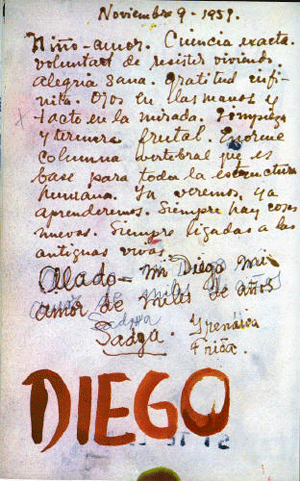 Noviembre 9 - 1951.
Niño-amor. Ciencia exacta.
voluntad de resistir viviendo
alegria sana. gratitud infi-
nita. Ojos en las manos y
tacto en la mirada. Limpieza
y ternura frutal. Enorme
columna vertebral que es
base para toda la estructura
humana. Ya veremos, ya
aprenderemos. Siempre hay cosas
nuevas. Siempre ligadas a las
antiguas vivas.
Alado - mi Diego mi
amor de miles de años
Sadga. Yrenáica
Frida.
DIEGO